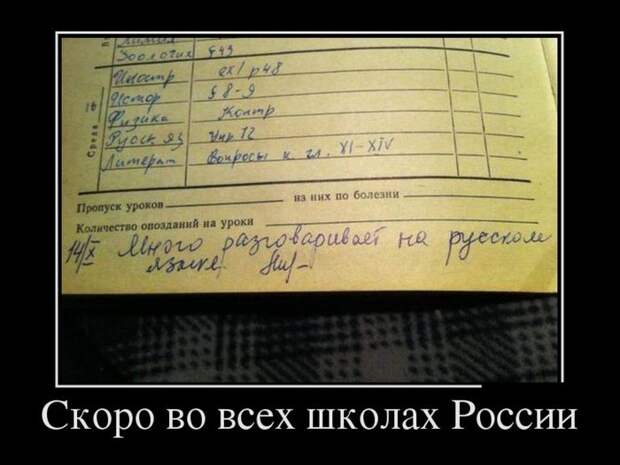 Зоология § 49
Иностр ex1 p48
Истор § 8-9
Физика Контр
Русск яз Упр 72
Литерат Вопросы к гл. XI-XIV
Среда 16
Пропуск уроков из них по болезни
Количество опозданий на уроки
14/X Много разговаривает на русском
языке.
Скоро во всех школах России